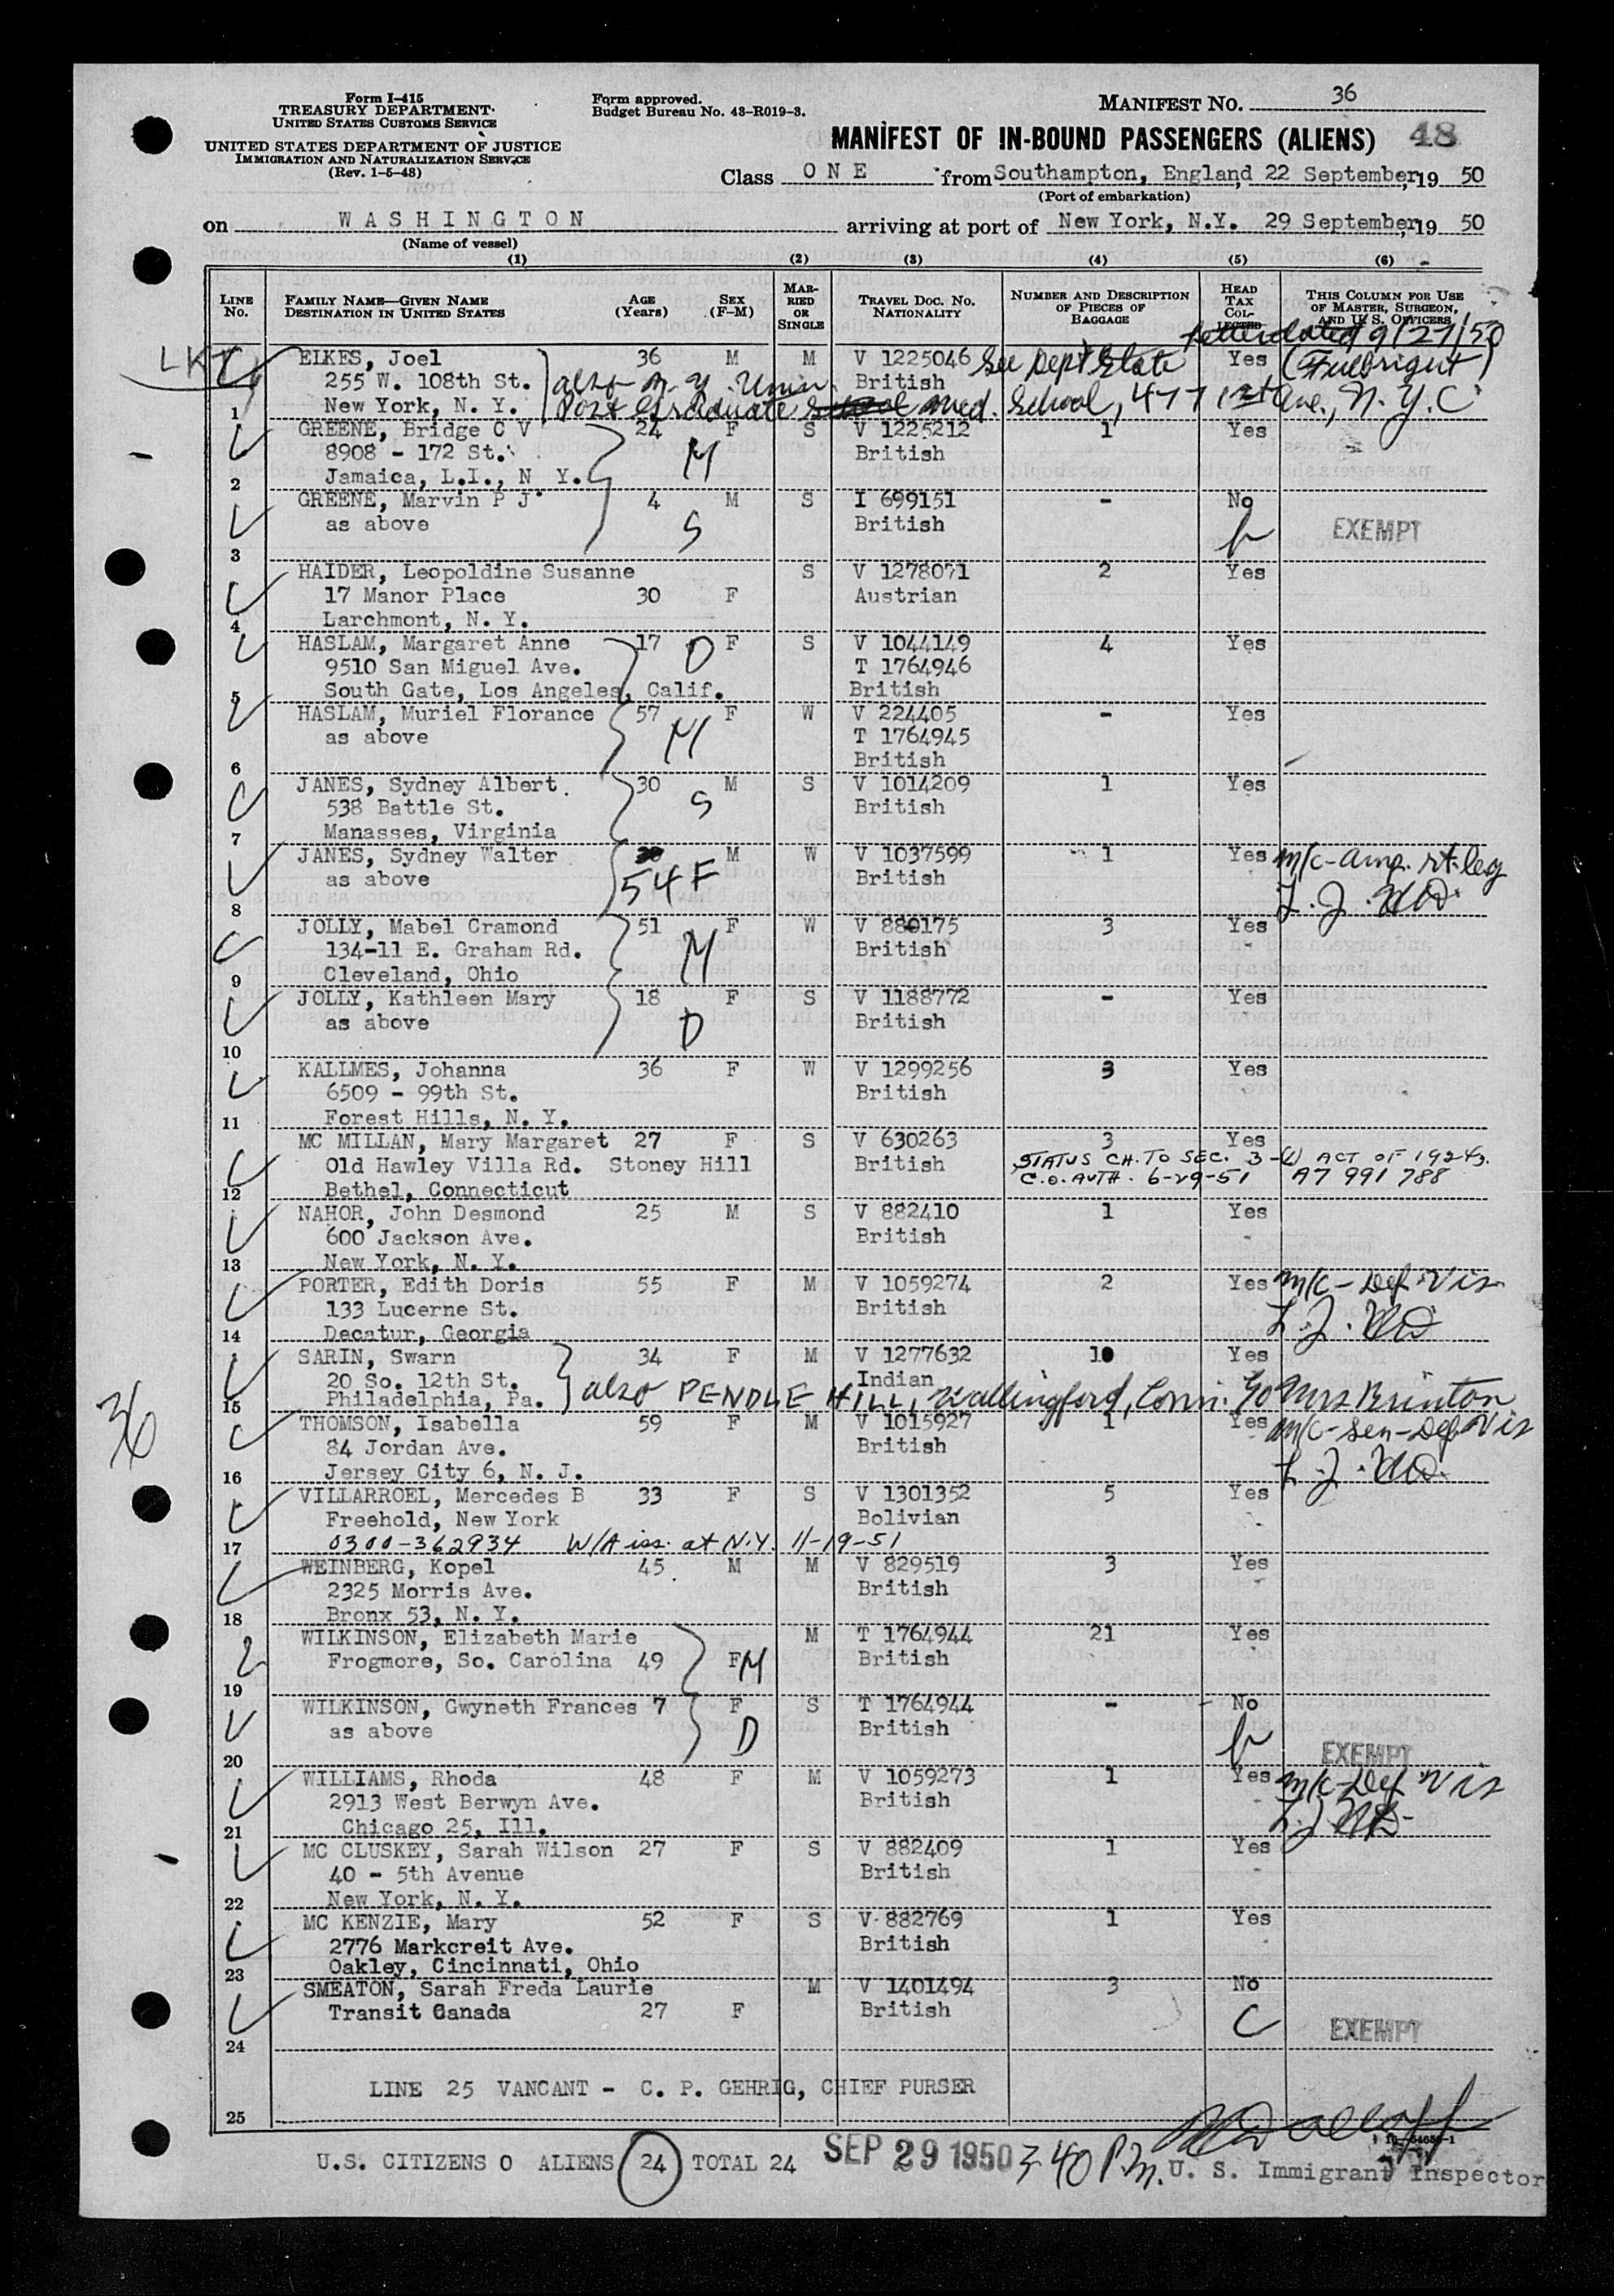 Form I-415
TREASURY DEPARTMENT
UNITED STATES CUSTOMS SERVICE
UNITED STATES DEPARTMENT OF JUSTICE
IMMIGRATION AND NATURALIZATION SERVICE
(Rev. 1-5-48)
Form approved.
Budget Bureau No. 43-R019-3.
MANIFEST NO. 36
MANIFEST OF IN-BOUND PASSENGERS (ALIENS) 48
Class O N E from Southampton, England, 22 September, 19 50
(Port of embarkation)
on W A S H I N G T O N arriving at port of New York, N.Y. 29 September, 19 50
(Name of vessel)
(1) (2) (3) (4) (5) (6)
LINE No. FAMILY NAME—GIVEN NAME DESTINATION IN UNITED STATES AGE (Years) SEX (F-M) MARRIED OR SINGLE TRAVEL DOC. NO. NATIONALITY NUMBER AND DESCRIPTION OF PIECES OF BAGGAGE HEAD TAX COLLECTED THIS COLUMN FOR USE OF MASTER, SURGEON, AND U. S. OFFICERS
letter dated 9/27/50
LKT
ELKES, Joel 36 M M V 1225046 See Dept State Yes (Fulbright)
255 W. 108th St. also N.Y. Univ. British
1 New York, N. Y. Post Graduate med. School, 477 1st Ave., N.Y.C
GREENE, Bridge C V 24 F S V 1225212 1 Yes
8908 - 172 St. M British
2 Jamaica, L.I., N Y.
GREENE, Marvin P J 4 M S I 699151 - No
as above S British EXEMPT
3
HAIDER, Leopoldine Susanne S V 1278071 2 Yes
17 Manor Place 30 F Austrian
4 Larchmont, N. Y.
HASLAM, Margaret Anne 17 D F S V 1044149 4 Yes
9510 San Miguel Ave. T 1764946
5 South Gate, Los Angeles, Calif. British
HASLAM, Muriel Florance 57 F W V 224405 - Yes
as above M T 1764945
6 British
JANES, Sydney Albert 30 M S V 1014209 1 Yes
538 Battle St. S British
7 Manasses, Virginia
JANES, Sydney Walter M W V 1037599 1 Yes m/c-amp. rt. leg
as above 54 F British L. J. MD.
8
JOLLY, Mabel Cramond 51 F W V 880175 3 Yes
134-11 E. Graham Rd. M British
9 Cleveland, Ohio
JOLLY, Kathleen Mary 18 F S V 1188772 - Yes
as above D British
10
KALLMES, Johanna 36 F W V 1299256 3 Yes
6509 - 99th St. British
11 Forest Hills, N. Y.
MC MILLAN, Mary Margaret 27 F S V 630263 3 Yes
Old Hawley Villa Rd. Stoney Hill British STATUS CH. TO SEC. 3-(2) ACT OF 1924
12 Bethel, Connecticut C.O. AUTH. 6-29-51 A7 991 788
NAHOR, John Desmond 25 M S V 882410 1 Yes
600 Jackson Ave. British
13 New York, N. Y.
PORTER, Edith Doris 55 F M V 1059274 2 Yes m/c-Def. Vis
133 Lucerne St. British L. J. MD
14 Decatur, Georgia
SARIN, Swarn 34 F M V 1277632 10 Yes
20 So. 12th St. Indian
15 Philadelphia, Pa. also PENDLE HILL, Wallingford, Conn. c/o Mrs Brinton
36
THOMSON, Isabella 59 F M V 1015927 1 Yes m/c-Sen-Def Vis
84 Jordan Ave. British L. J. MD.
16 Jersey City 6, N. J.
VILLARROEL, Mercedes B 33 F S V 1301352 5 Yes
Freehold, New York Bolivian
17 0300-362934 W/A iss. at N.Y. 11-19-51
WEINBERG, Kopel 45 M M V 829519 3 Yes
2325 Morris Ave. British
18 Bronx 53, N. Y.
WILKINSON, Elizabeth Marie M T 1764944 21 Yes
Frogmore, So. Carolina 49 F M British
19
WILKINSON, Gwyneth Frances 7 F S T 1764944 - No
as above D British
20 EXEMPT
WILLIAMS, Rhoda 48 F M V 1059273 1 Yes m/c-Def Vis
2913 West Berwyn Ave. British L. J. MD
21 Chicago 25, Ill.
MC CLUSKEY, Sarah Wilson 27 F S V 882409 1 Yes
40 - 5th Avenue British
22 New York, N. Y.
MC KENZIE, Mary 52 F S V 882769 1 Yes
2776 Markcreit Ave. British
23 Oakley, Cincinnati, Ohio
SMEATON, Sarah Freda Laurie M V 1401494 3 No
Transit Canada 27 F British C EXEMPT
24
LINE 25 VANCANT - C. P. GEHRIG, CHIEF PURSER
25
U.S. CITIZENS 0 ALIENS 24 TOTAL 24 SEP 29 1950 3 40 P.m. U. S. Immigrant Inspector